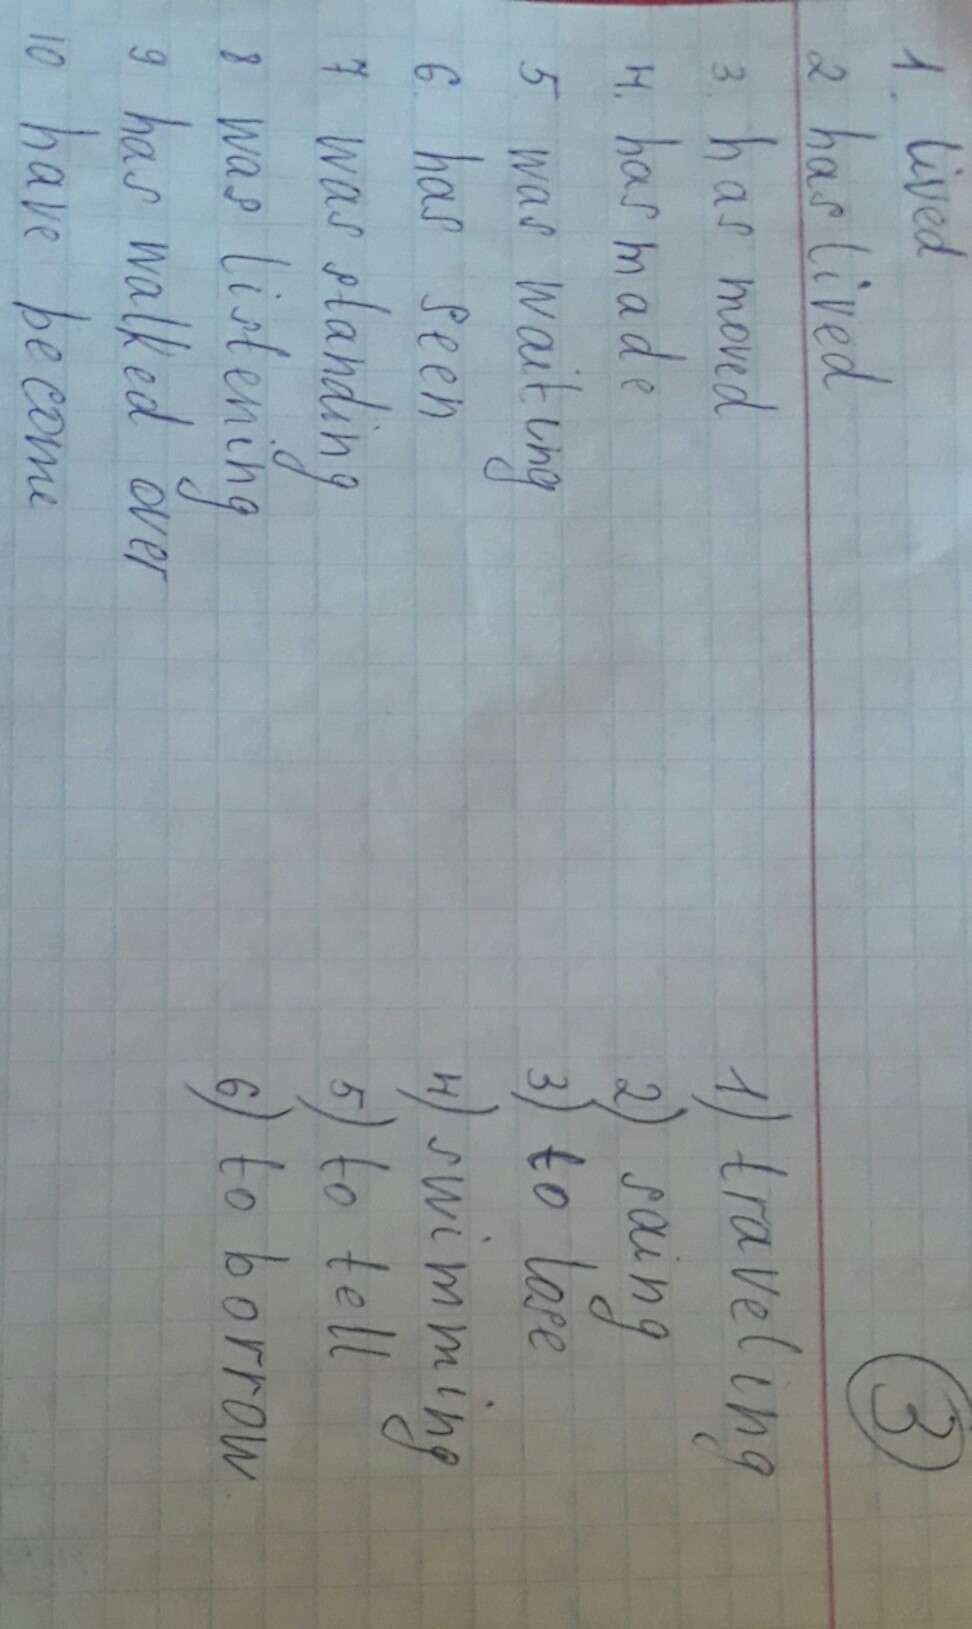 1. lived
2. has lived
3. has moved
4. has made
5. was waiting
6. has seen
7 was standing
8 was listening
9 has walked over
10 have become
3
1) traveling
2) saing
3) to lase
4) swimming
5) to tell
6) to borrow.